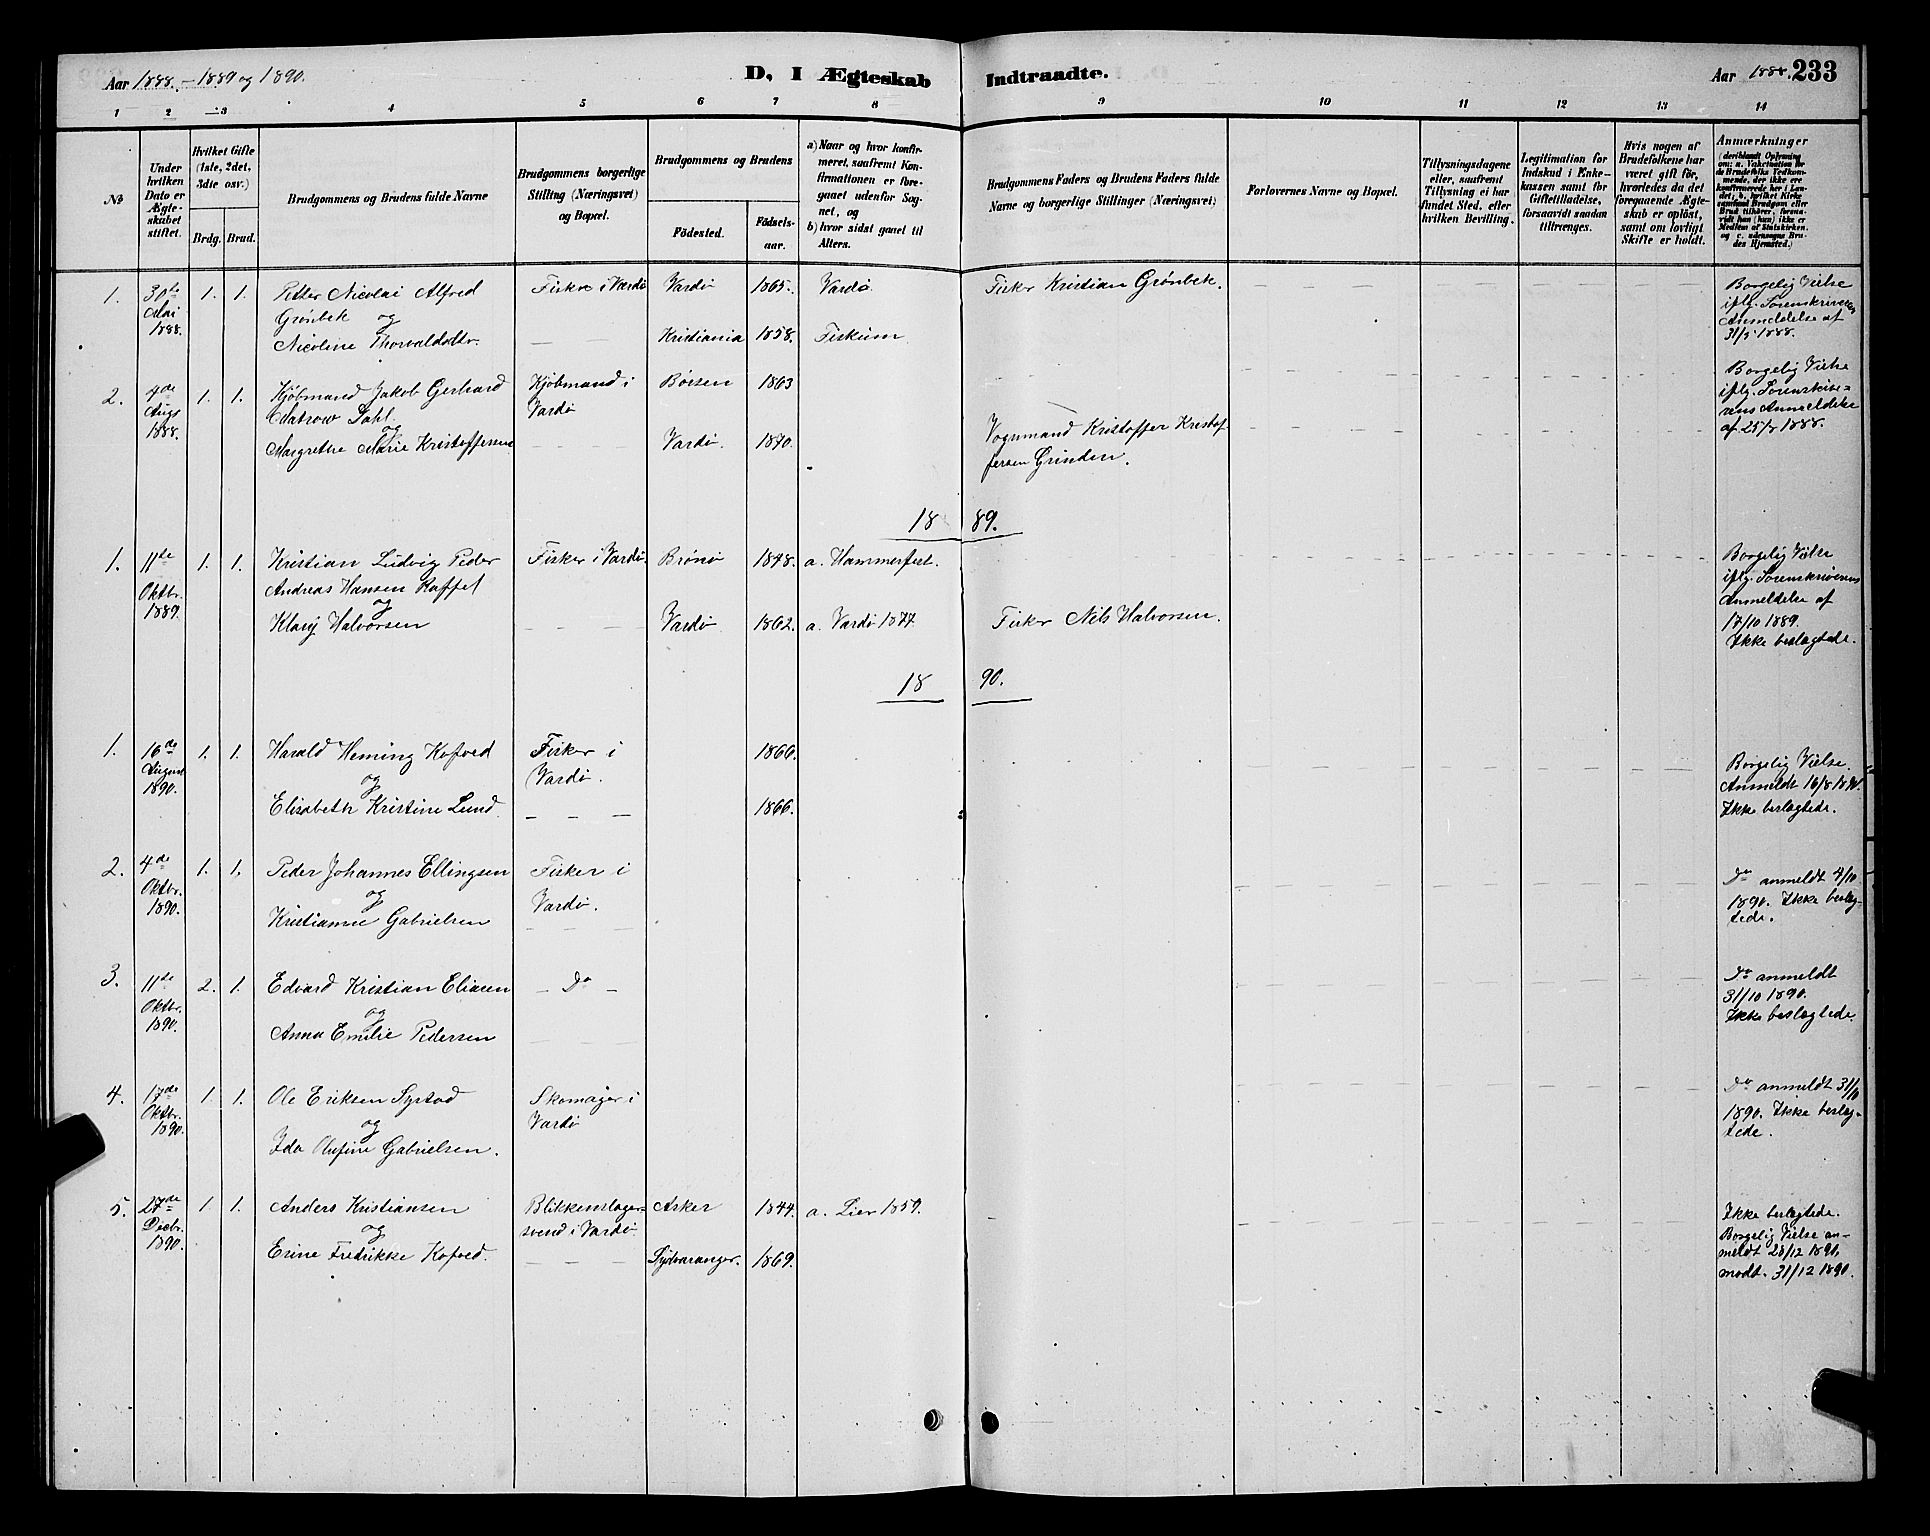 Aar 1888. - 1889 og 1890.
D, I Ægteskab Indtraadte.
Aar 1888. 233
1 2 3 4 5 6 7 8 9 10 11 12 13 14
No
Under hvilken Dato er Ægteskabet stiftet.
Hvilket Gifte (1ste, 2det, 3die osv.)
Brdg. Brud.
Brudgommens og Brudens fulde Navne
Brudgommens borgerlige Stilling (Næringsvei) og Bopæl.
Brudgommens og Brudens
Fødested.
Fødselsaar.
a) Naar og hvor konfirmeret, saafremt Konfirmationen er foregaaet udenfor Sognet, og
b) hvor sidst gaaet til Alters.
Brudgommens Faders og Brudens Faders fulde Navne og borgerlige Stillinger (Næringsvei)
Forlovernes Navne og Bopæl.
Tillysningsdagene eller, saafremt Tillysning ei har fundet Sted, efter hvilken Bevilling.
Legitimation for Indskud i Enkekassen samt for Giftetilladelse, forsaavidt saadan tiltrænges.
Hvis nogen af Brudefolkene har været gift før, hvorledes da det foregaaende Ægteskab er opløst, samt om lovligt Skifte er holdt.
Anmærkninger
(deriblandt Oplysning om: a. Vakcination for de Brudefolks Vedkommende, der ikke ere konfirmerede her i Landet, b. hvilket Kirkesamfund Brudgom eller Brud tilhører, forsaavidt han (hun) ikke er Medlem af Statskirken, og c. udensogns Brudes Hjemsted.)
1. 30te Mai 1888. 1. 1. Petter Nicolai Alfred Grønbek og Nicoline Thorvaldsdtr.
Fisker i Vardø Vardø 1865. Vardø Fisker Kristian Grønbek.
Kristiania 1858. Fiskum
Borgelig Vielse
iflg. Sorenskriverens
Anmeldelse af
31/5 1888.
2. 4de Augs 1888. 1. 1. Kjøbmand Jakob Gerhard
Dahl.
og
Margrethe Marie Kristoffersen
Kjøbmand i Vardø 1863
Vardø. 1870. Vognmand Kristoffer Kristoffersen Grinden.
Borgelig Vielse
iflg. Sorenskriverens Anmeldelse
af 25/8 1888.
18 89.
1. 11te Oktbr. 1889. 1. 1. Kristian Ludvig Peder
Andreas Hansen Kaffel
og
Klary Halvorsen
Fisker i Vardø. Brønø 1848. a. Hammerfest.
Vardø 1862. a. Vardø 1877. Fisker Nils Halvorsen.
Borgelig Vielse
iflg. Sorenskriverens
Anmeldelse af
17/10 1889.
Ikke beslægtede.
18 90.
1. 16de August 1890. 1. 1. Harald Heming Kofoed
og
Elisabeth Kristine Lund
Fisker i
Vardø.
1866.
1866.
Borgelig Vielse.
Anmeldt 16/8 1890.
Ikke beslægtede.
2. 4de Oktbr. 1890. 1. 1. Peder Johannes Ellingsen
og
Kristianne Gabrielsen
Fisker i
Vardø.
Do anmeldt 4/10
1890. Ikke beslægtede.
3. 11te Oktbr. 1890. 2. 1. Edvard Kristian Eliasen
og
Anna Emilie Pedersen
- Do -
Do anmeldt
31/10 1890.
Ikke beslægtede.
4. 17de Oktbr. 1890. 1. 1. Ole Eriksen Systad
og
Ida Olufine Gabrielsen.
Skomager i
Vardø
Do anmeldt 31/10
1890. Ikke beslægtede.
5. 27de Decbr. 1890. 1. 1. Anders Kristiansen
og
Erine Fredrikke Kofoed.
Blikkenslagersvend i Vardø.
Asker 1844. a. Lier 1859.
Sydvaranger. 1869.
Ikke beslægtede.
Borgelig Vielse anmeldt 28/12 1890,
modt. 31/12 1890.